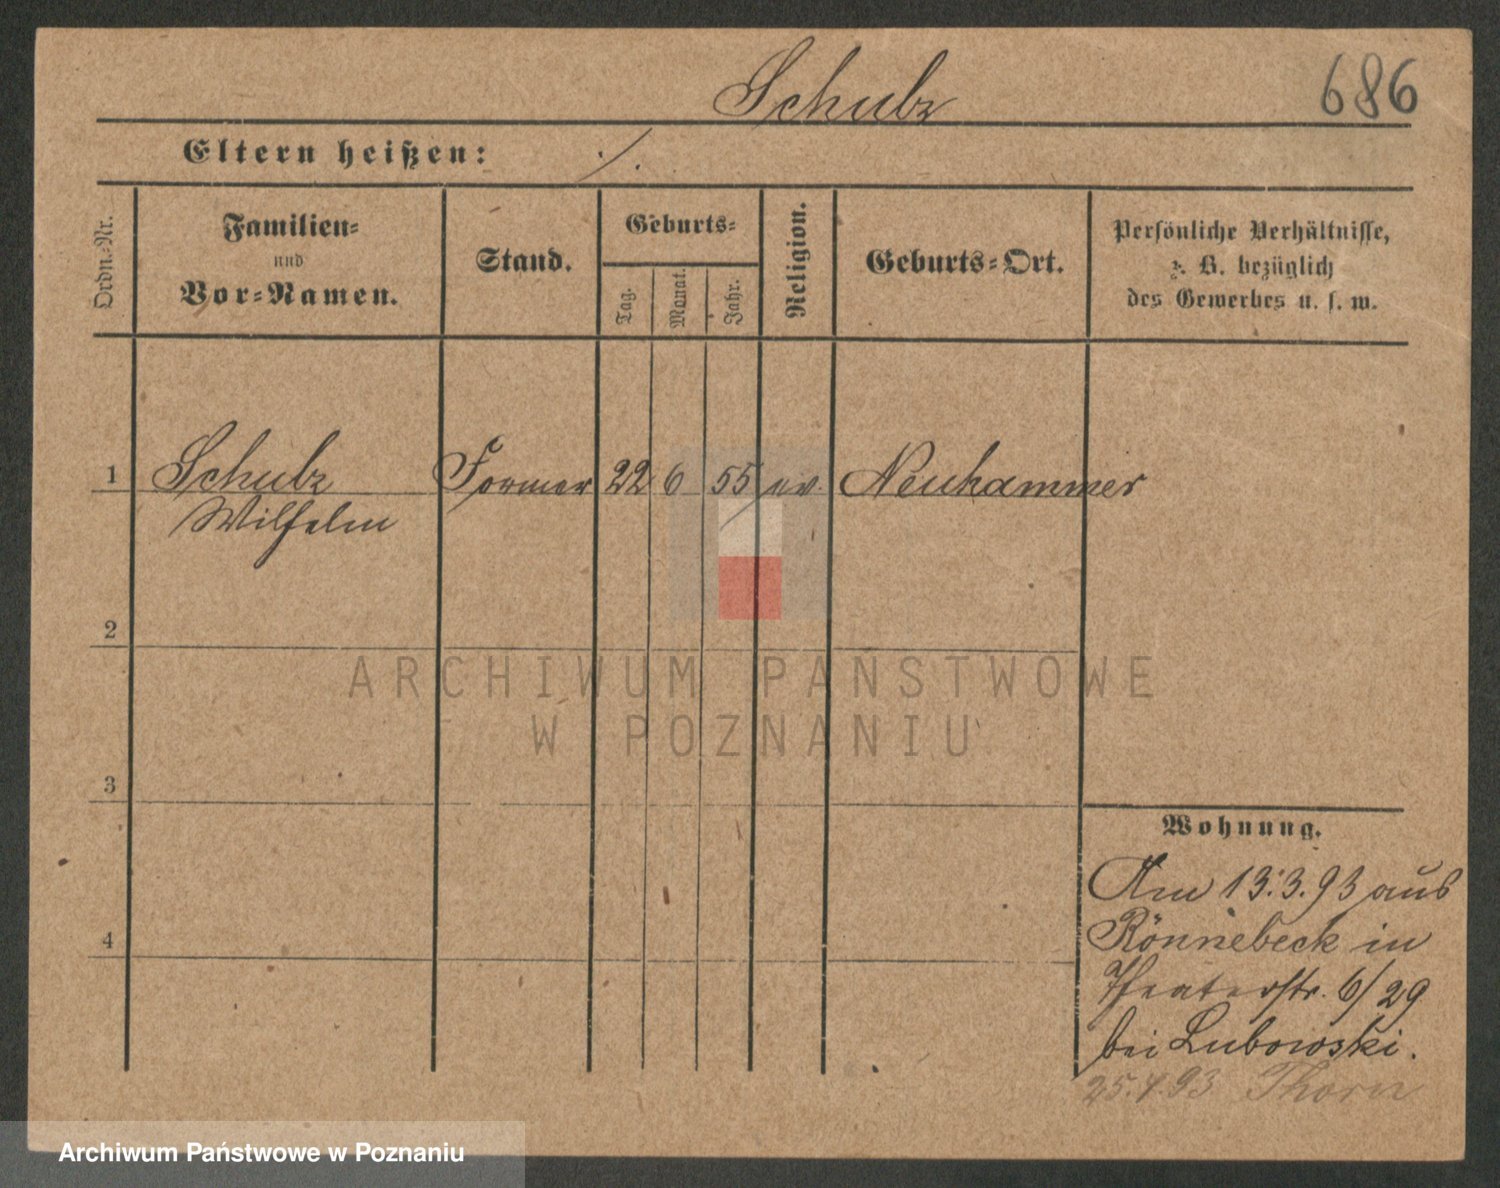 Schulz
686
Eltern heißen: ./.
Ordn.-Nr.
Familien-
und
Vor-Namen.
Stand.
Geburts-
Tag.
Monat.
Jahr.
Religion.
Geburts-Ort.
Persönliche Verhältnisse,
z. B. bezüglich
des Gewerbes u. s. w.
1 Schulz Former 22 6 55 ev. Neuhammer
Wilhelm
2
ARCHIWUM PAŃSTWOWE
W POZNANIU
3
Wohnung.
Am 13.3.93 aus
Rönnebeck in
4
Theaterstr. 6/29
bei Lubowski.
25.4.93 Thorn
Archiwum Państwowe w Poznaniu